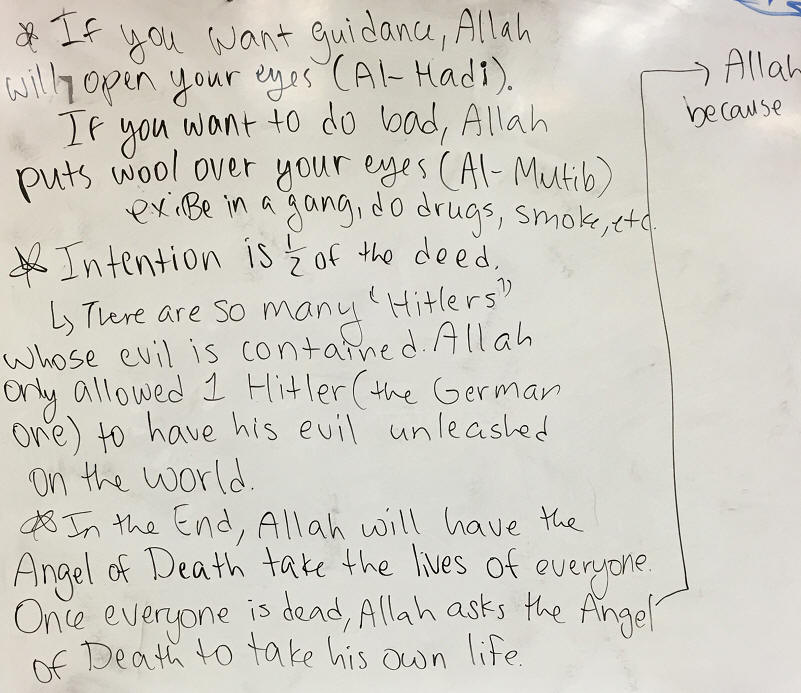 * If you want guidance, Allah
will open your eyes (Al-Hadi).
If you want to do bad, Allah
puts wool over your eyes (Al-Mutib)
ex: Be in a gang, do drugs, smoke, etc.
* Intention is 1/2 of the deed.
↳ There are so many "Hitlers"
whose evil is contained. Allah
only allowed 1 Hitler (the German
one) to have his evil unleashed
on the world.
* In the End, Allah will have the
Angel of Death take the lives of everyone.
Once everyone is dead, Allah asks the Angel
of Death to take his own life.
→ Allah
because